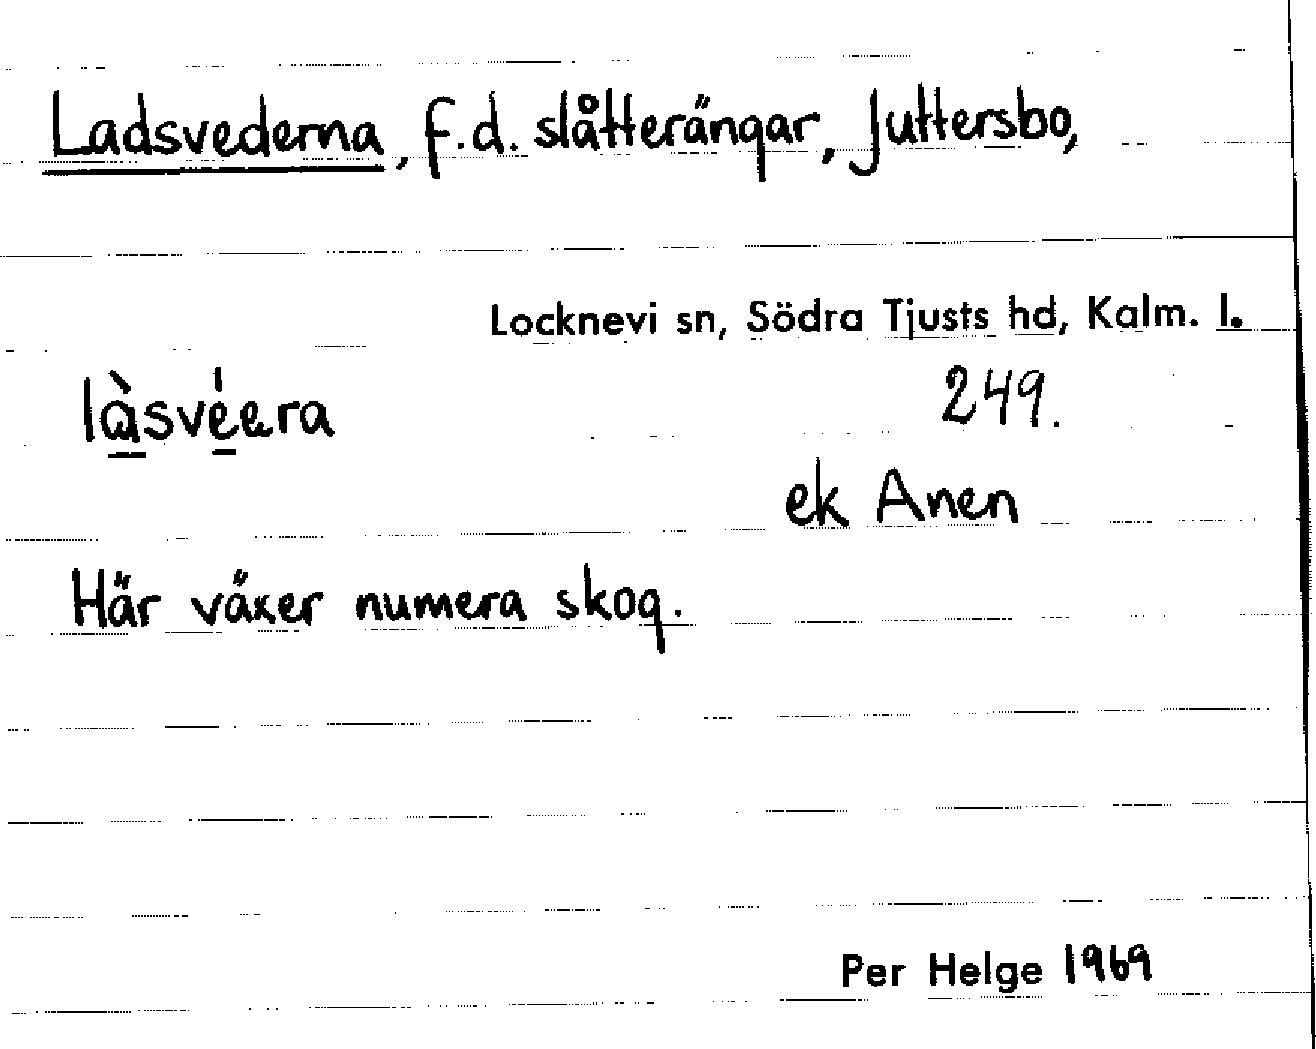 Ladsvederna, f.d. slåtterängar, Juttersbo,
Locknevi sn, Södra Tjusts hd, Kalm. l.
làsvéera
249.
ek Anen
Här växer numera skog.
Per Helge 1969